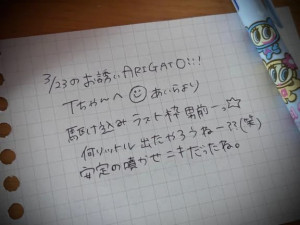 3/23のお誘いARIGATO!!!
Tちゃんへ あいらより
駆け込みラスト枠 男前ーっ☆
何リットル出たやろうねー??(笑)
安定の噴かせニキだったね。